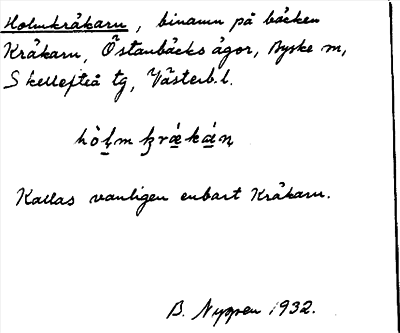 Holmkråkarn, binamn på bäcken
Kråkarn, Östanbäcks ägor, Byske sn,
Skellefteå tg, Västerb. l.
hö̀l̥m kræ̀kán̥
Kallas vanligen enbart Kråkarn.
B. Nyman 1932.